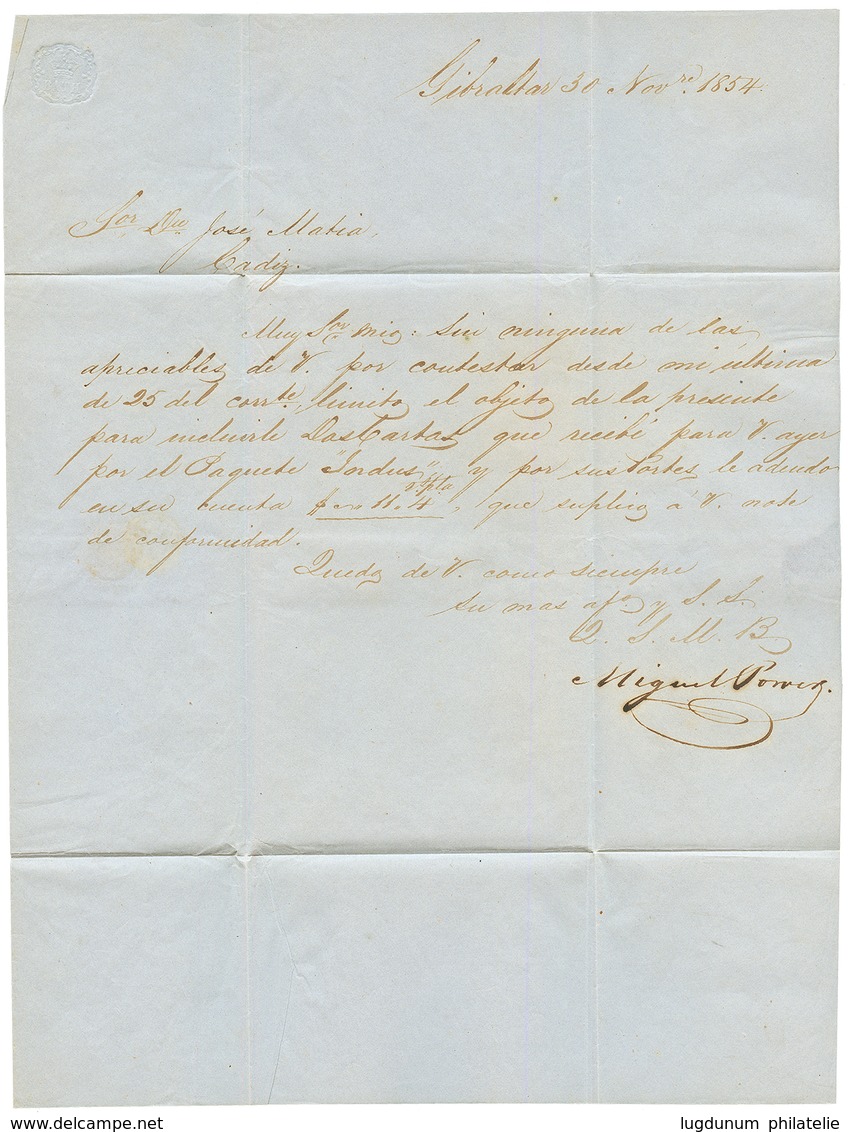 Gibraltar 30 Novre. 1854.
Sor Dn José Matia,
Cadiz.
Muy Sor mio: Sin ninguna de las
apreciables de V. por contestar desde mi última
de 25 del corrte, limito el objeto de la presente
para incluirle Dos Cartas que recibé para V. ayer
por el Paquete "Indus", y por sus Portes le adeudo
en su cuenta $ 11.4, que suplico á V. note
de conformidad.
Quedo de V. como siempre
su mas afo. y S. S.
Q. S. M. B.
Miguel Power.
delcampe.net
lugdunum philatelie